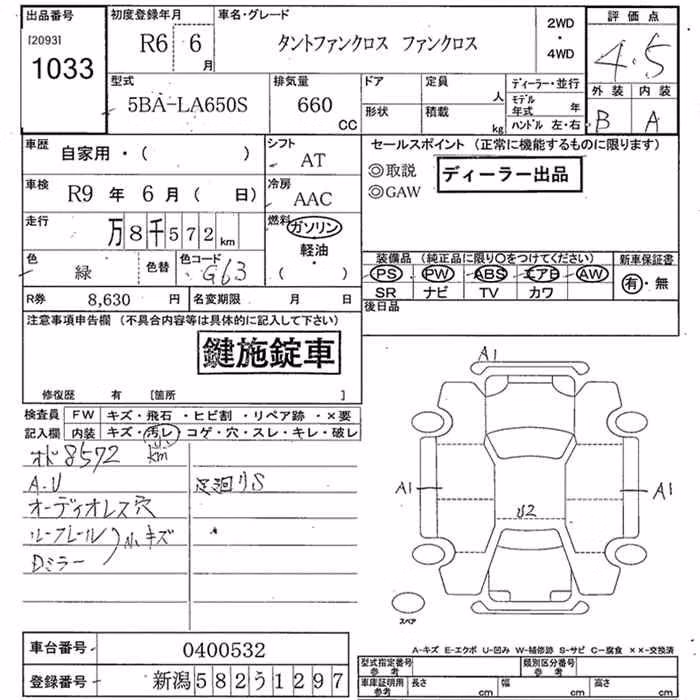 出品番号
[2093]
1033
初度登録年月
R6 6 月
車名・グレード
タントファンクロス ファンクロス
2WD
・
4WD
評価点
4.5
外装 内装
B A
型式
5BA-LA650S
排気量
660
CC
ドア
形状
定員
人
積載
kg
ディーラー・並行
モデル年式 年
ハンドル 左・右
車歴
自家用・( )
シフト
AT
車検
R9 年 6 月 ( 日)
冷房
AAC
走行
万 8 千 5 7 2 km
燃料
ガソリン
軽油
( )
色
緑
色替
色コード
G63
R券 8,630 円
名変期限 月 日
セールスポイント (正常に機能するものに限ります)
◎取説
◎GAW
ディーラー出品
装備品 (純正品に限り○をつけてください)
PS PW ABS エアB AW
SR ナビ TV カワ
新車保証書
有・無
後日品
注意事項申告欄 (不具合内容等は具体的に記入して下さい)
鍵施錠車
修復歴 有 [箇所 ]
検査員
記入欄
FW キズ・飛石・ヒビ割・リペア跡・×要
内装 キズ・汚レ・コゲ・穴・スレ・キレ・破レ
オド8572km
A.U
足廻りS
オーディオレス穴
ルーフレール
小キズ
Dミラー
A1
A1
A1
U2
スペア
車台番号 0400532
登録番号 新潟582う1297
A-キズ E-エクボ U-凹み W-補修跡 S-サビ C-腐食 ××-交換済
型式指定番号
参考
類別区分番号
参考
車庫証明用
参考
長さ cm
幅 cm
高さ cm